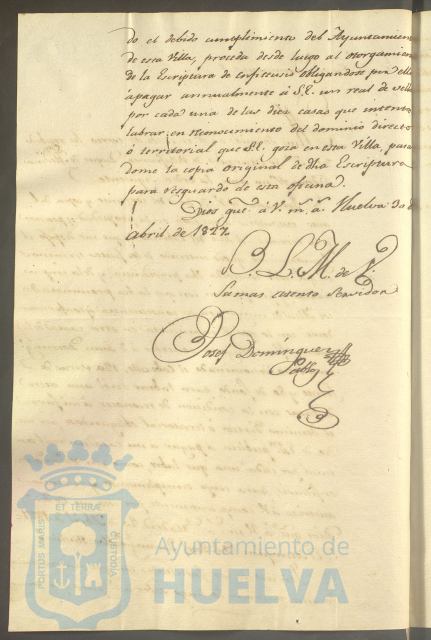 do el debido cumplimiento del Ayuntamien
de esta Villa, proceda desde luego al otorgamien
de la Escriptura de enfiteusis obligandose por ella
à pagar annualmente à S.E. un real de vello
por cada una de las diez casas que intenta
labrar, en reconocimiento del dominio directo
ò territorial que S.E. goza en esta Villa, pasa
dome la copia original de dha Escriptura
para resguardo de esta oficina.
Dios gue. à V. m. a. Huelva 30 d
Abril de 1827.
B. L. M. de V.
Su mas atento Servidor
Josef Dominguez
PORTUS MARIS
ET TERRAE
CUSTODIA
Ayuntamiento de
HUELVA